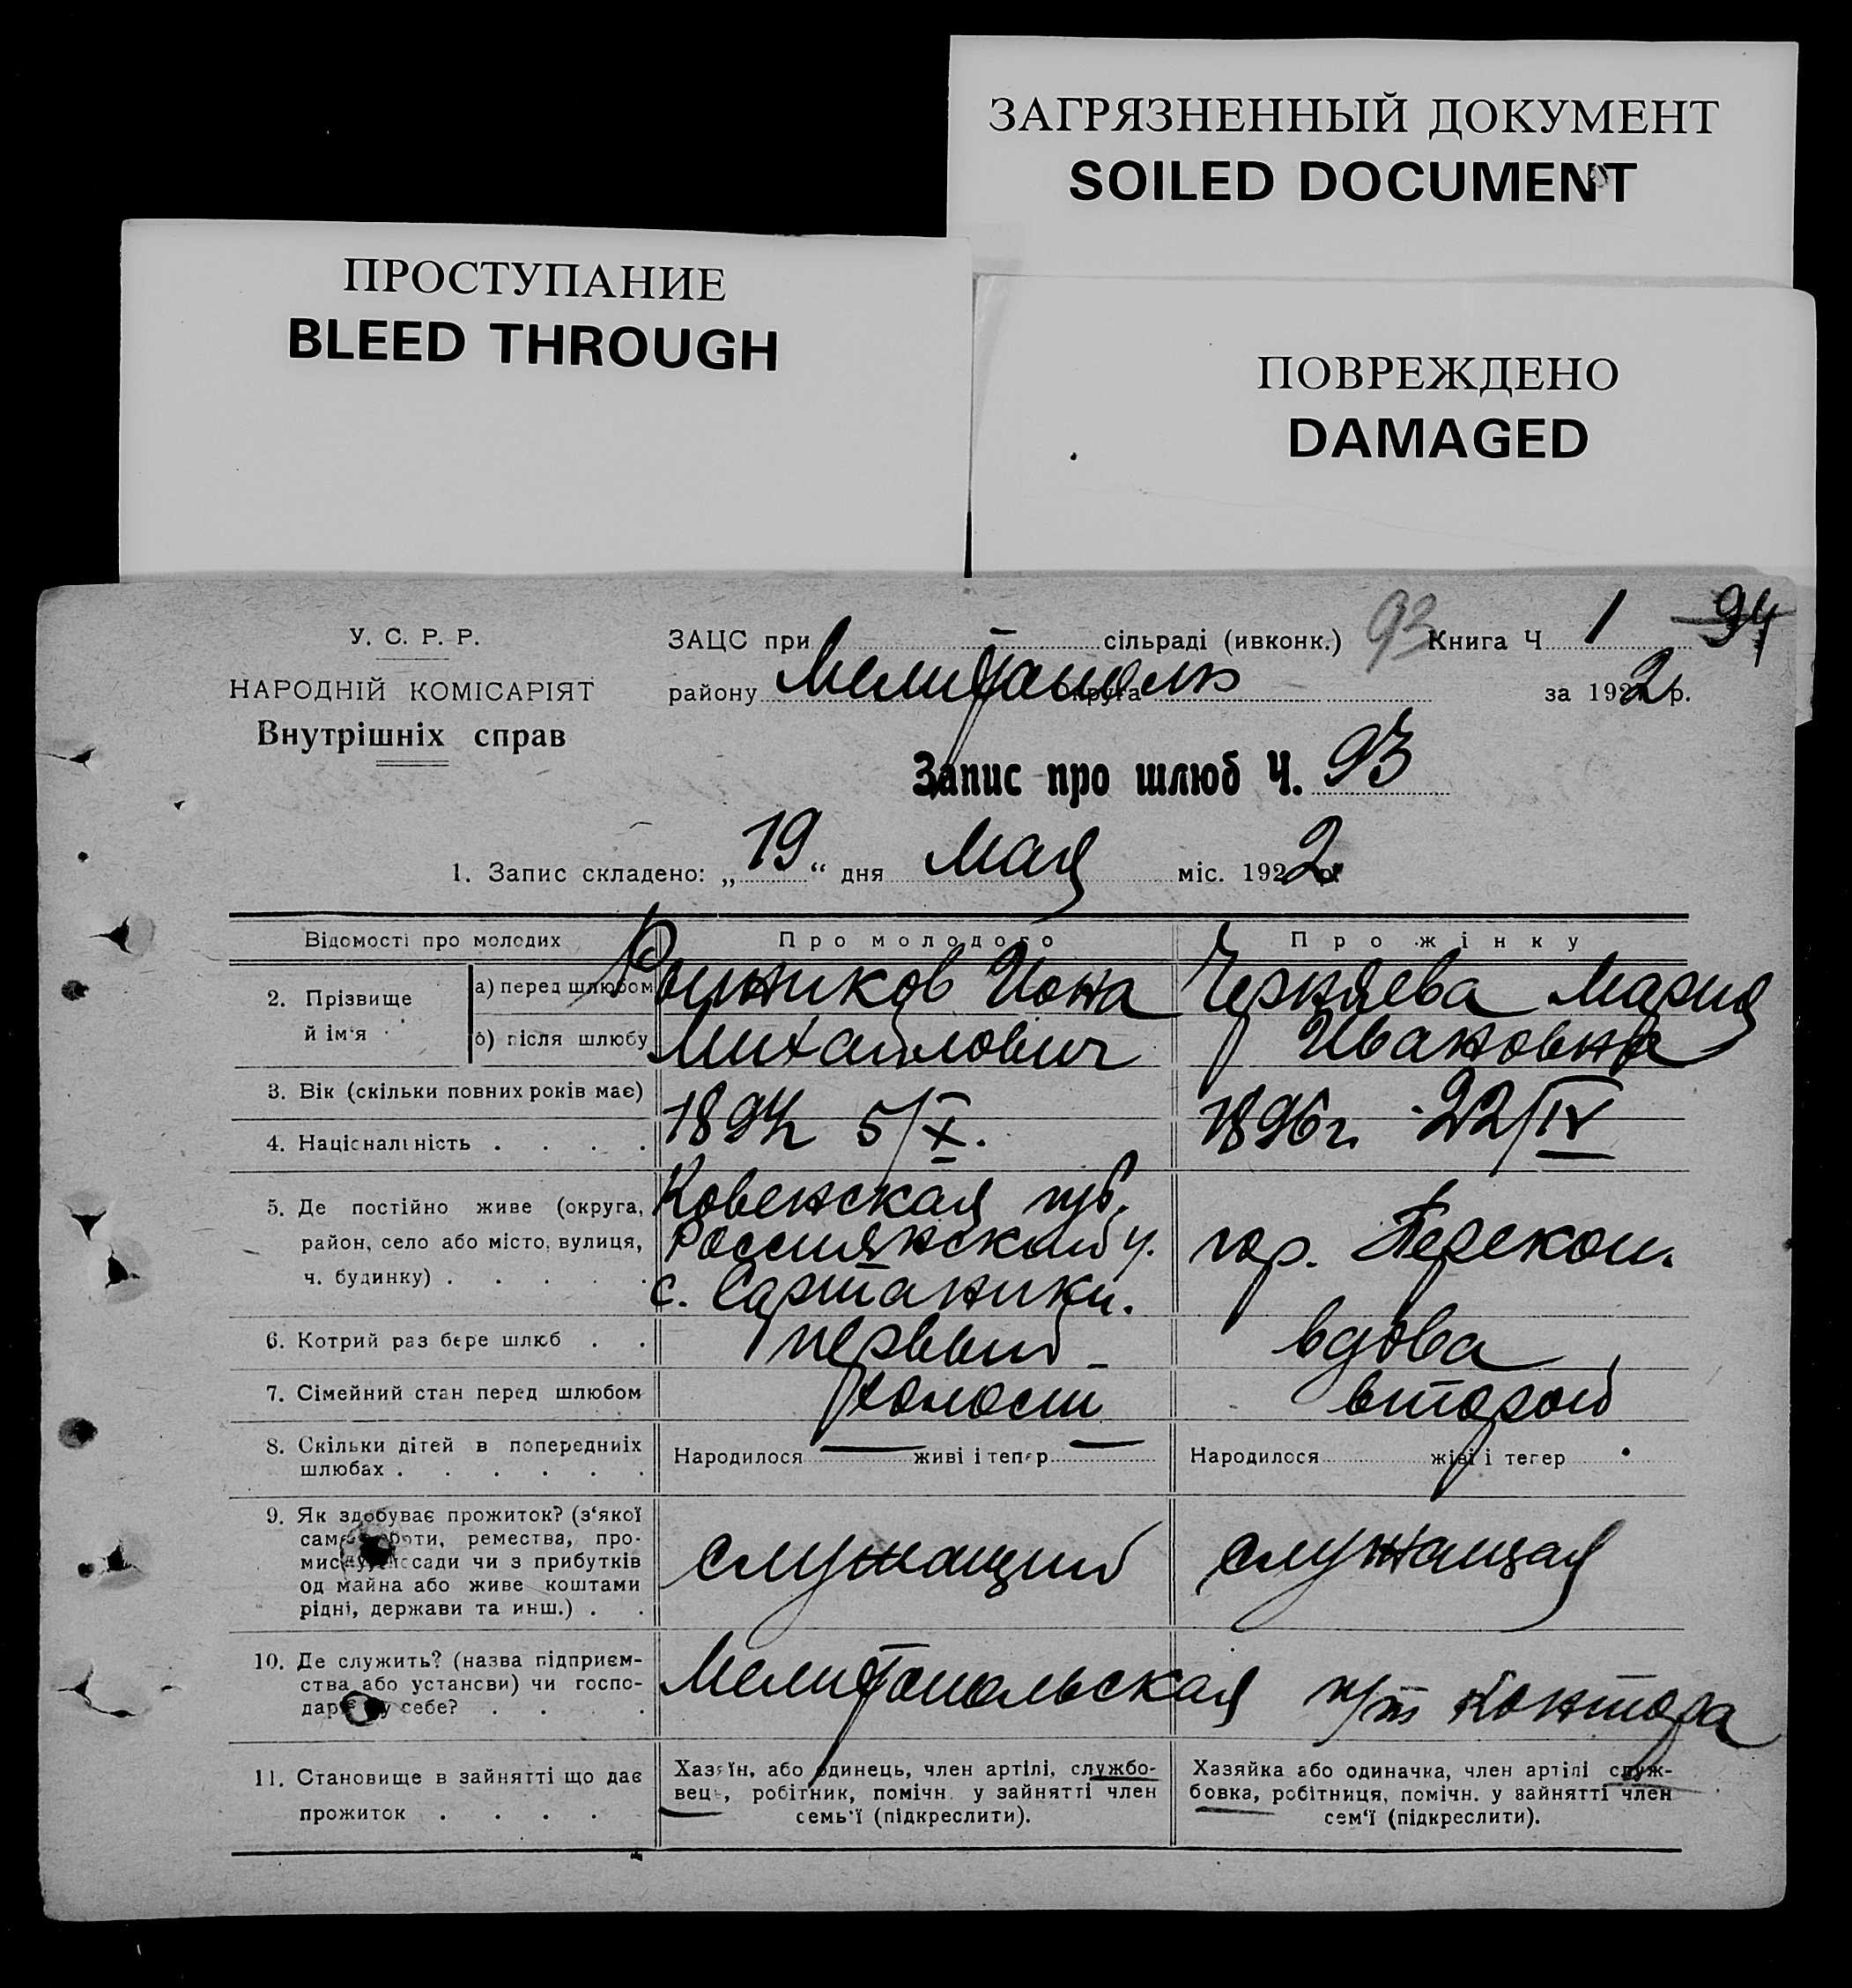 ЗАГРЯЗНЕННЫЙ ДОКУМЕНТ
SOILED DOCUMENT
ПРОСТУПАНИЕ
BLEED THROUGH
ПОВРЕЖДЕНО
DAMAGED
У. С. Р. Р.
НАРОДНІЙ КОМІСАРІЯТ
Внутрішніх справ
ЗАЦС при сільраді (ивконк.) 93 Книга Ч 1 94
району Мелитополь округа за 1922 р.
Запис про шлюб Ч. 93
1. Запис складено: „19“ дня Мая міс. 1922 р.
Відомості про молодих
Про молодого
Про жінку
2. Прізвище й ім'я
а) перед шлюбом
б) після шлюбу
Иона
Михайлович
Черняева Мария
Ивановна
3. Вік (скільки повних років має)
4. Національність . . . .
1894 5/X.
1896 г. 22/IV
5. Де постійно живе (округа,
район, село або місто, вулиця,
ч. будинку) . . . . .
Ковенская губ.
у.
с.
гор. Перекоп.
6. Котрий раз бере шлюб . .
первый
вдова
7. Сімейний стан перед шлюбом
холост
второй
8. Скільки дітей в попередниіх
шлюбах . . . . . .
Народилося — живі і тепер —
Народилося живі і тепер
9. Як здобуває прожиток? (з‘якої
саме роботи, ремества, про-
мислу, посади чи з прибутків
од майна або живе коштами
рідні, держави та инш.) . .
служащий
служащая
10. Де служить? (назва підприєм-
ства або установи) чи госпо-
дарює у себе? . . . .
Мелитопольская п/т Контора
11. Становище в зайнятті що дає
прожиток . . . .
Хазяїн, або одинець, член артілі, службо-
вець, робітник, помічн. у зайнятті член
семь'ї (підкреслити).
Хазяйка або одиначка, член артілі служ-
бовка, робітниця, помічн. у зайнятті член
сем‘ї (підкреслити).